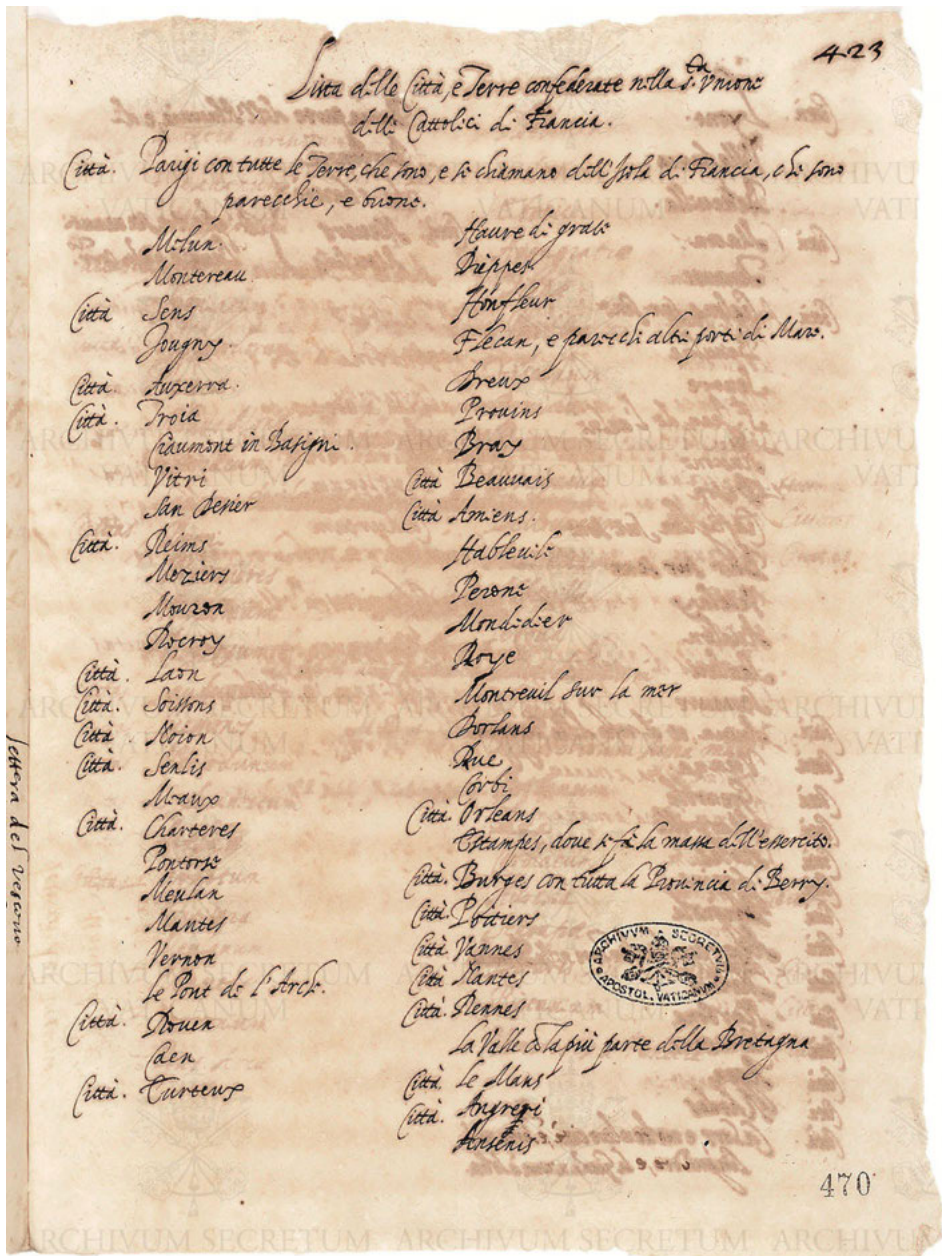 423
Lista delle Città, e Terre confederate nella s.ta Unione
delli Cattolici di Francia.
Città. Parigi con tutte le Terre, che sono, e se chiamano dell'Isola di Francia, che sono
parecchie, e buone.
Melun.
Montereau
Città Sens
Jougny.
Città. Auxerra.
Città. Troia
Ciaumont in Basigni.
Vitri
San Desier
Città. Reims
Meziers
Mouzon
Rocroy
Città. Laon
Città. Soissons
Città. Noion
Città. Senlis
Meaux
Città. Charteres
Pontorse
Meulan
Mantes
Vernon
le Pont de l'Arche.
Città. Rouen
Caen
Città. Eureux
Haure di grate
Dieppes
Honfleur
Flecan, e parecchi altri porti di Mare.
Dreux
Prouins
Bray
Città Beauuais
Città Amiens.
Hableuile
Perone
Mondidier
Roye
Montreuil sur la mer
Dorlans
Rue
Corbi
Città. Orleans
Estampes, dove si fà la massa dell'essercito.
Città. Burges con tutta la Provincia di Berry.
Città. Poitiers
Città Vannes
Città Nantes
Città. Rennes
La Valle et la più parte della Bretagna
Città. Le Mans
Città. Angieri
Ansenis
lettera del Vescovo
ARCHIVVM SECRETVM APOSTOL. VATICANVM
470
ARCHIVUM SECRETUM VATICANUM